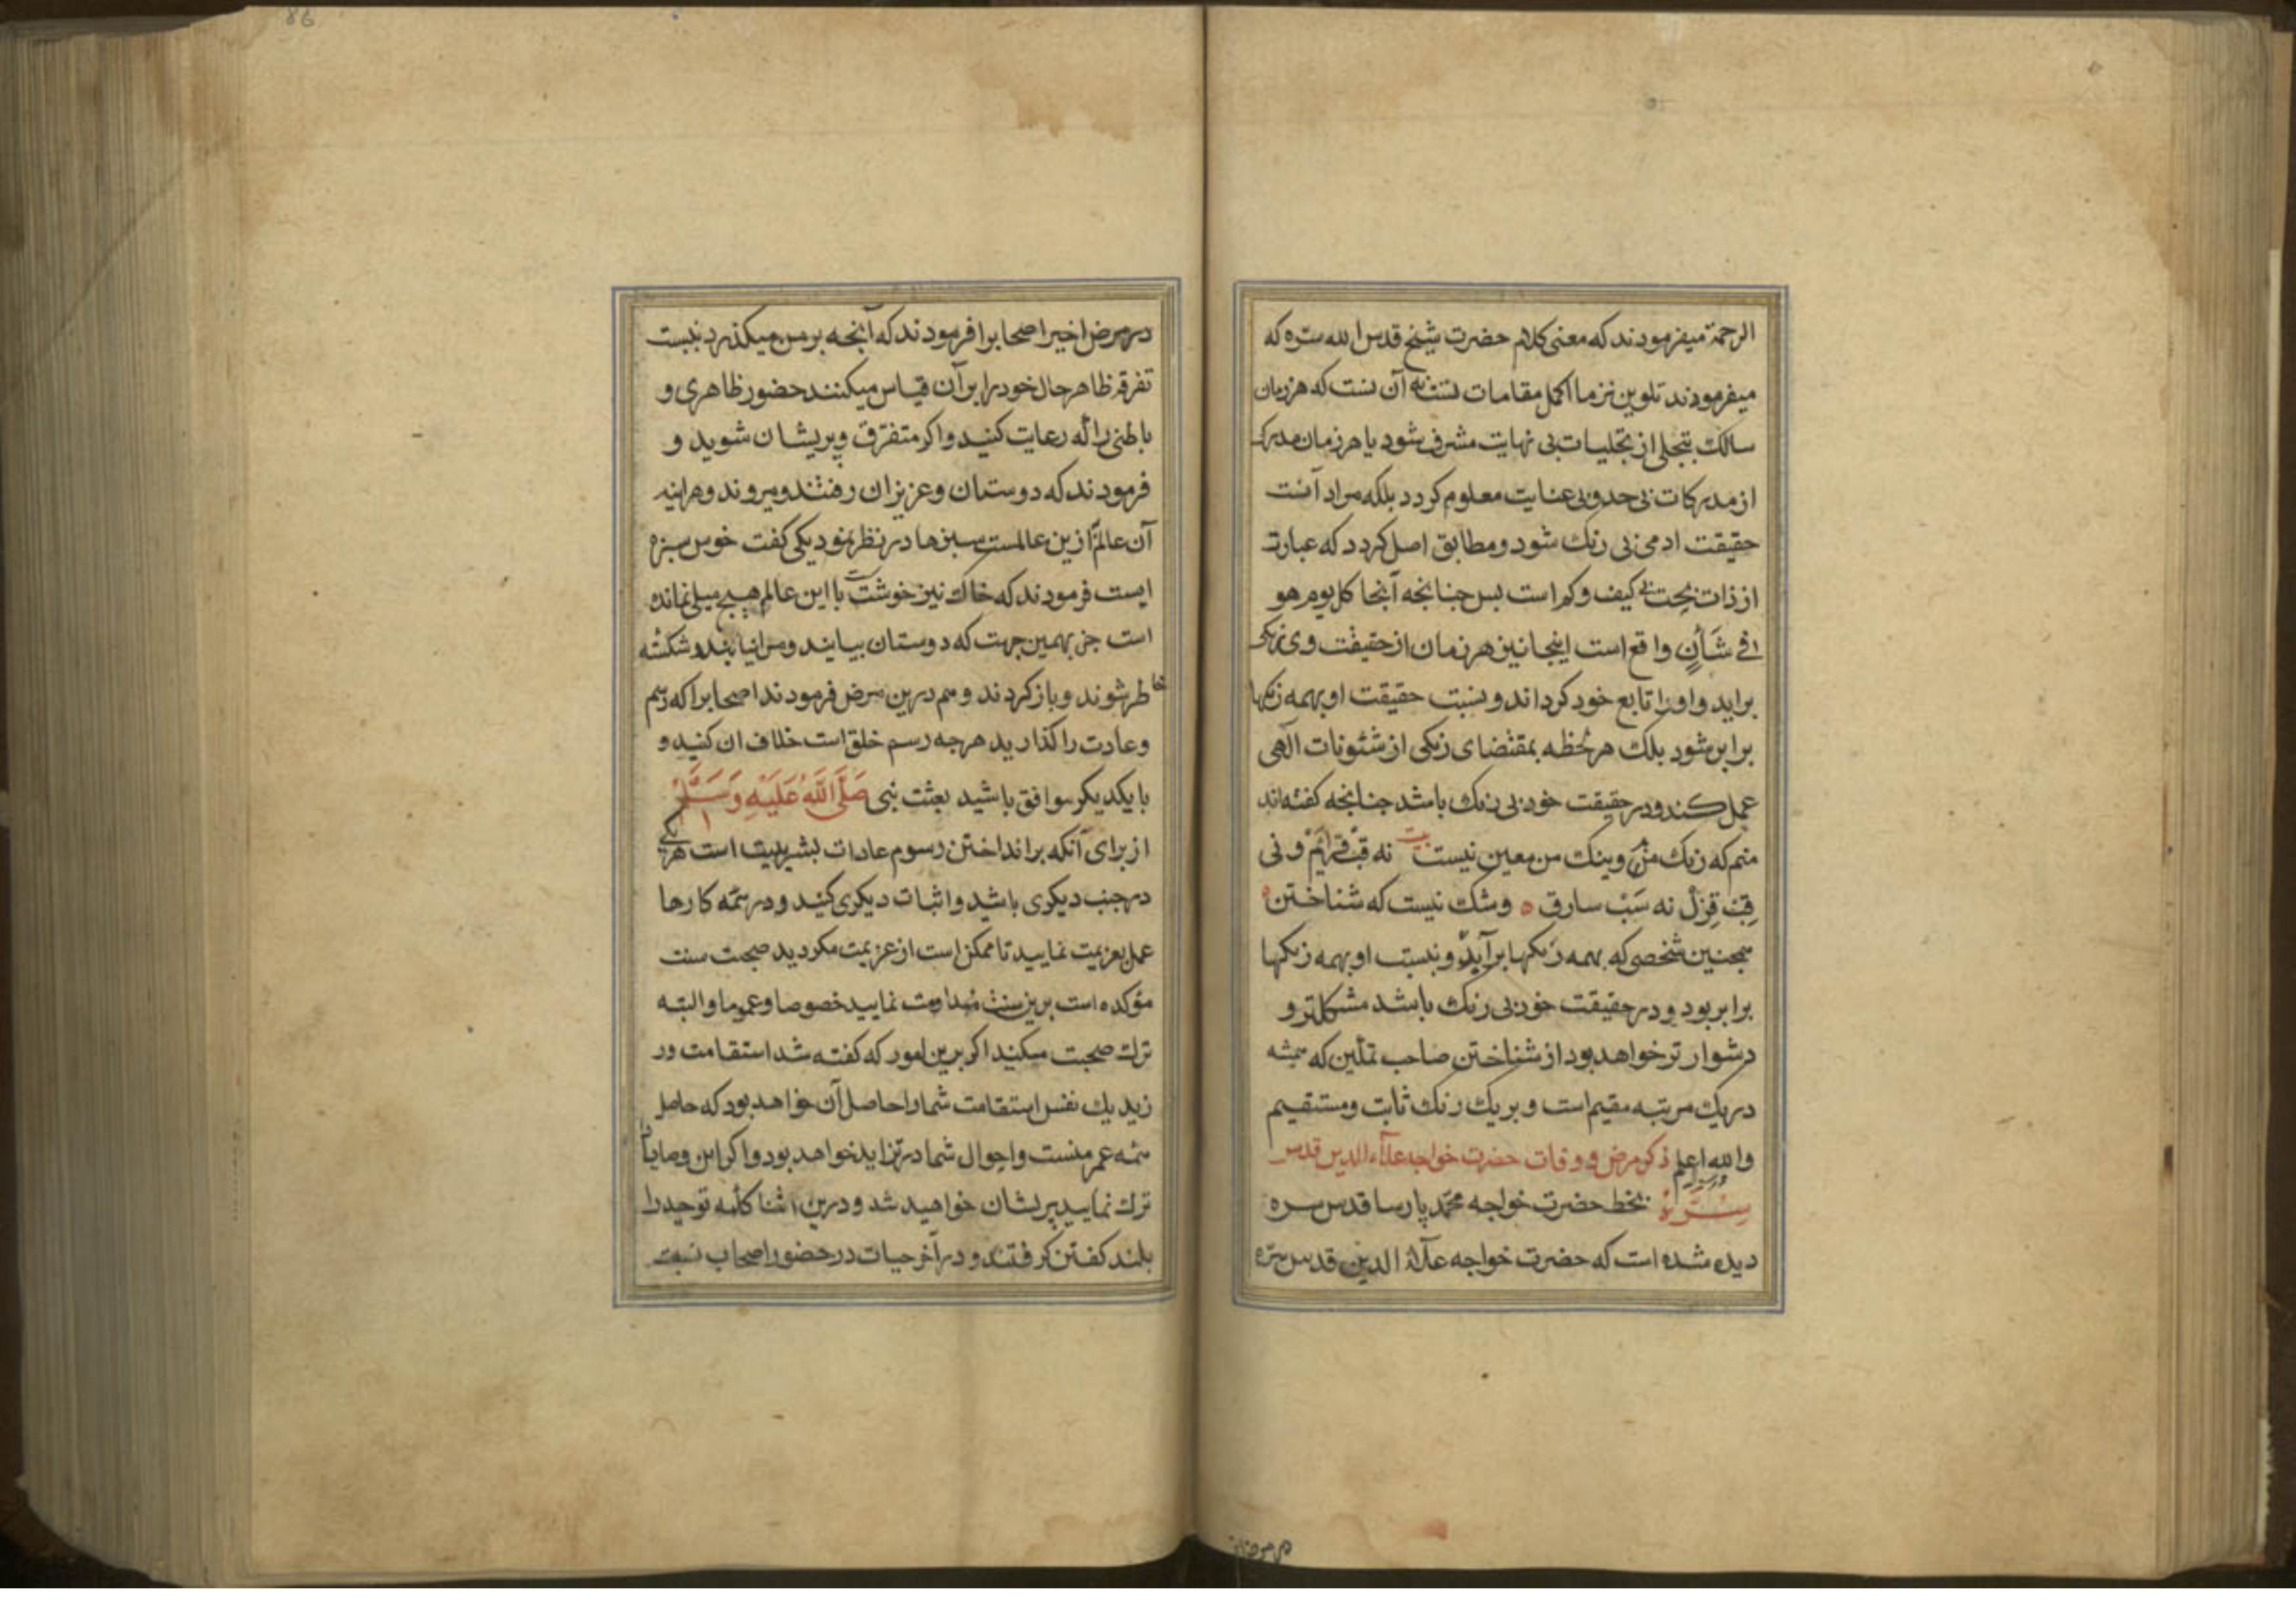 الرحمة میفرمودند که معنی کلام حضرت شیخ قدس الله سره که
میفرمودند تلوین نزد ما اکمل مقامات است نه آن نست که هر زمان
سالک بتجلی از تجلیات بی نهایت مشرف شود یا هر زمان مدرک
از مدرکات بی حد و بی عنایت معلوم کردد بلکه مراد آنست
حقیقت ادمی بی رنک شود و مطابق اصل کردد که عبارت
از ذات بحت بی کیف و کم است بس جنانجه آنجا کل یوم هو
فی شَأنٍ واقع است اینجا نیز هر زمان از حقیقت وی رنکی
براید و اورا تابع خود کرداند و نسبت حقیقت او بهمه رنکها
برابر شود بلک هر لحظه بمقتضای رنکی از شئونات الهی
عمل کند و در حقیقت خود بی رنک باشد جنانجه کفته اند
منم که رنک من و ینک من معین نیست بیت نه قب قرایم و نی
قب قزل نه سَب سارق ه و شک نیست که شناختن
همجنین شخصی که بهمه رنکها برآید و نسبت او بهمه رنکها
برابر بود و در حقیقت خود بی رنک باشد مشکلتر و
دشوار تر خواهد بود از شناختن صاحب تمکین که همیشه
در یک مرتبه مقیم است و بر یک رنک ثابت و مستقیم
والله اعلم ذکر مرض و وفات حضرت خواجه علاء الدین قدس
سِرَّهُ بخط حضرت خواجه محمد پارسا قدس سره
دیده شده است که حضرت خواجه علآء الدین قدس سره
در مرض
در مرض اخیر اصحابرا فرمودند که آنجه بر من میکذرد نیست
تفرقه ظاهر حال خود را بر آن قیاس میکنند حضور ظاهری و
باطنی را رعایت کنید و اکر متفرق و پریشان شوید و
فرمودند که دوستان و عزیزان رفتند و میروند و هراینه
آن عالم ازین عالمست سبزها در نظر نمود یکی کفت خوس سبزه
ایست فرمودند که خاک نیز خوشت با این عالم هیج میلی نمانده
است جز بهمین جهت که دوستان بیایند و مرا نیابند و شکسته
خاطر شوند و باز کردند و هم درین مرض فرمودند اصحابرا که رسم
و عادت را کذارید هرجه رسم خلق است خلاف ان کنید و
بایکدیکر موافق باشید بعثت نبی صَلَّی اللهُ عَلَیهِ وَسَلَّمْ
از برای آنکه برانداختن رسوم عادات بشریت است هر یکی
در جنب دیکری باشید و اثبات دیکری کنید و در همه کارها
عمل بعزیمت نمایید تا ممکن است از عزیمت مکردید صحبت سنت
مؤکده است برین سنت مداومت نمایید خصوصا و عموما و البته
ترک صحبت میکنید اکر برین امور که کفته شد استقامت ور
زید یک نفس استقامت شما را حاصل آن خواهد بود که حاصل
همه عمر منست و احوال شما در تزاید خواهد بود و اکر این وصایا
ترک نمایید پریشان خواهید شد و درین اثنا کلمه توحید را
بلند کفتن کرفتند و در آخر حیات در حضور اصحاب نسبت
86